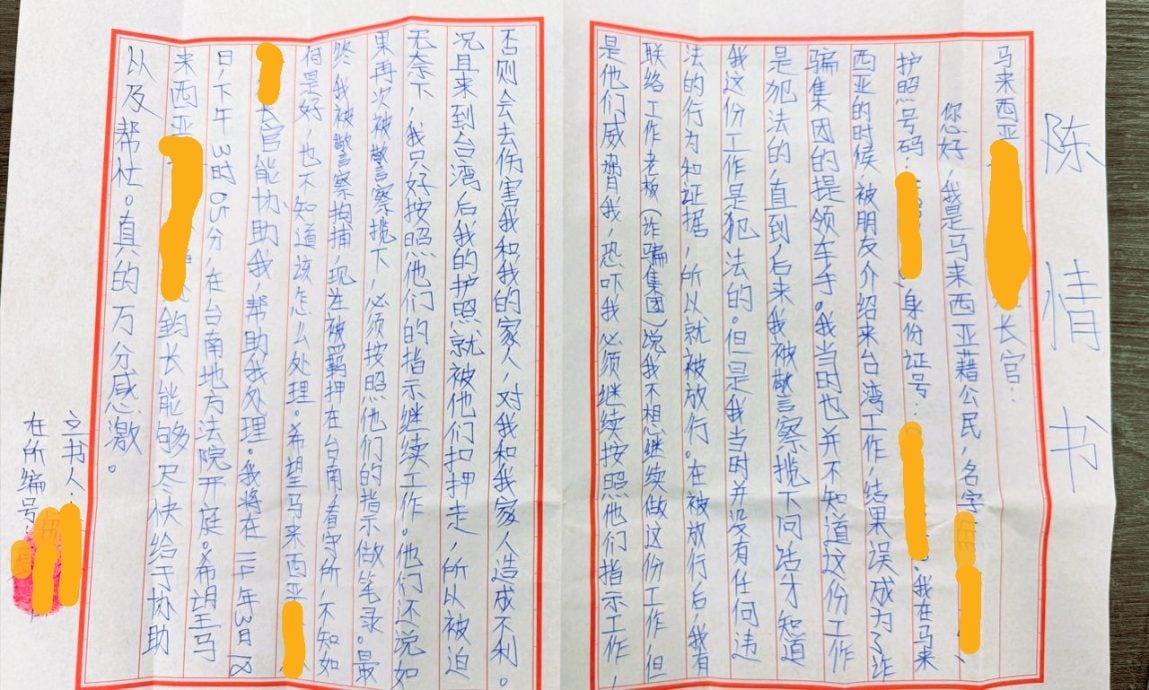 陈情书
马来西亚长官：
你好，我是马来西亚藉公民，名字：
护照号码：身份证号：、我在马来
西亚的时候被朋友介绍来台湾工作，结果误成为了诈
骗集团的提领车手。我当时也并不知道这份工作
是犯法的，直到后来我被警察揽下问话才知道
我这份工作是犯法的。但是我当时并没有任何违
法的行为和证据，所以就被放行。在被放行后，我有
联络工作老板（诈骗集团）说我不想继续做这份工作，但
是他们威胁我，恐吓我必须继续按照他们指示工作，
否则会去伤害我和我的家人，对我和我家人造成不利。
况且来到台湾后我的护照就被他们扣押走，所以被迫
无奈下，我只好按照他们的指示继续工作。他们还说如
果再次被警察揽下，必须按照他们的指示做笔录。最
终，我被警察拘捕，现在被羁押在台南看守所，不知如
何是好，也不知道该怎么处理。希望马来西亚
长官能协助我，帮助我处理。我将在114年3月18
日，下午3时05分，在台南地方法院开庭。希望马
来西亚钧长能够尽快给于协助
以及帮忙。真的万分感激。
立书人：
在所编号：